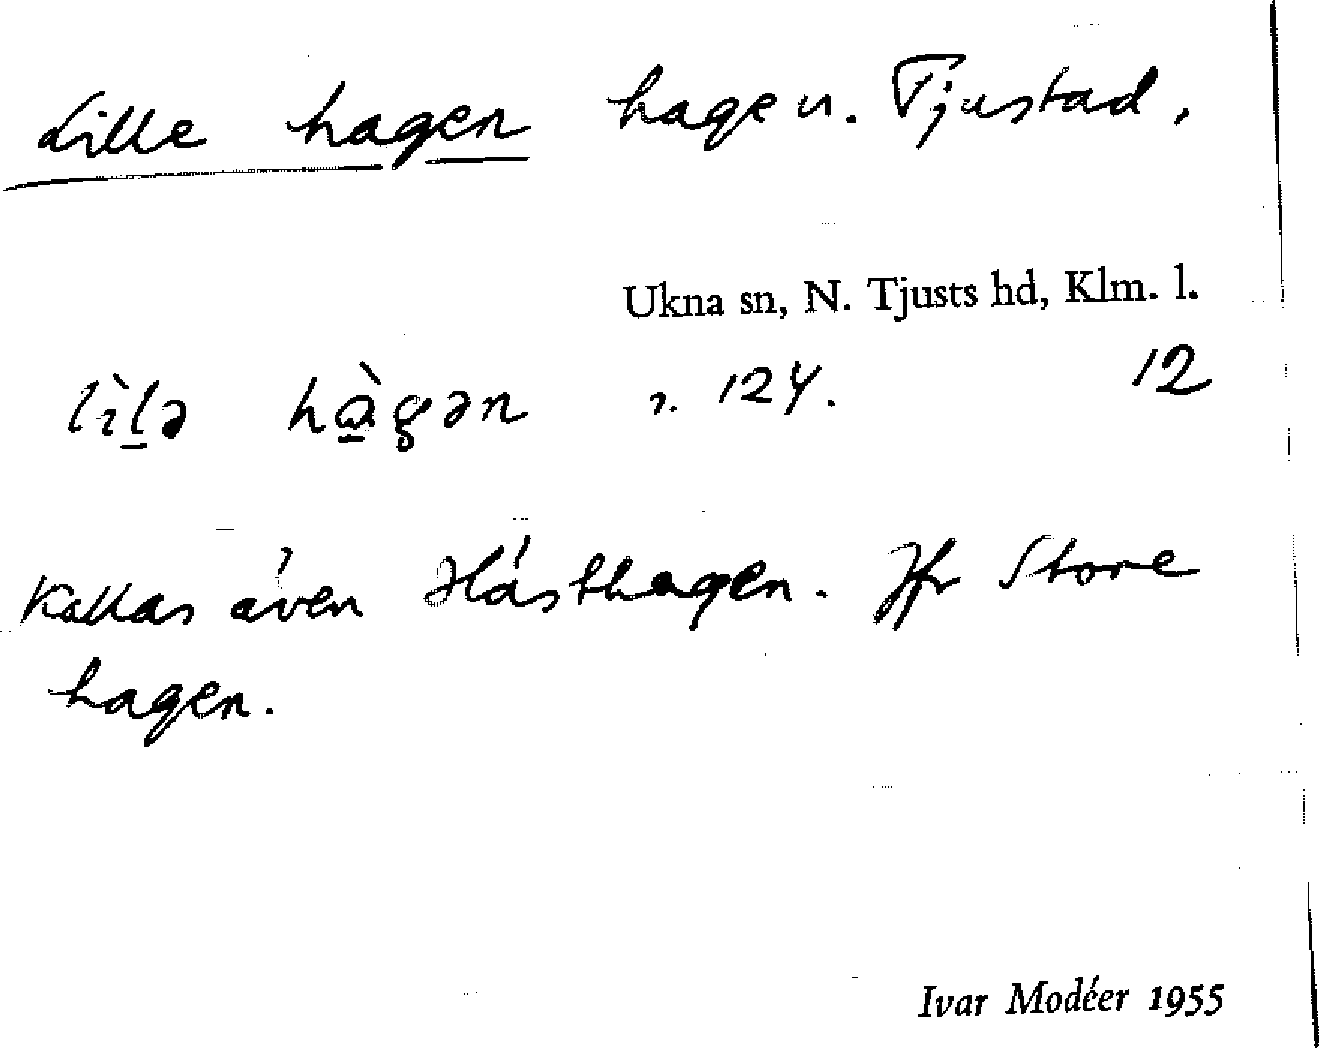 Lille hagen hage u. Tjustad,
Ukna sn, N. Tjusts hd, Klm. l.
lìl̠ə hà̠gən r. 124. 12
Kallas även Hästhagen. Jfr Store
hagen.
Ivar Modéer 1955